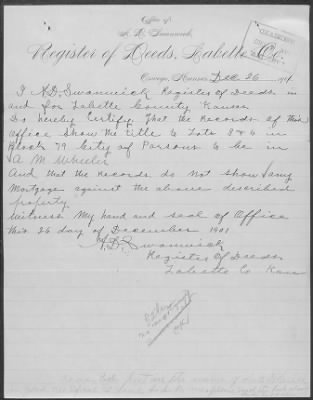 Office of
Register of Deeds, Labette Co.
Oswego, Kansas, Dec 26 1901
I A.D. Swanwick Register of Deeds in
and for Labette County Kansas
Do hereby Certify That the Records of this
Office Show the title to Lots 3 & 4 in
Block 79 City of Parsons to be in
A M Wheeler
And that the Records do not show any
Mortgage against the above described
property
Witness My hand and seal of Office
this 26 day of December 1901
A.D. Swanwick
Register Of Deeds
Labette Co Kans